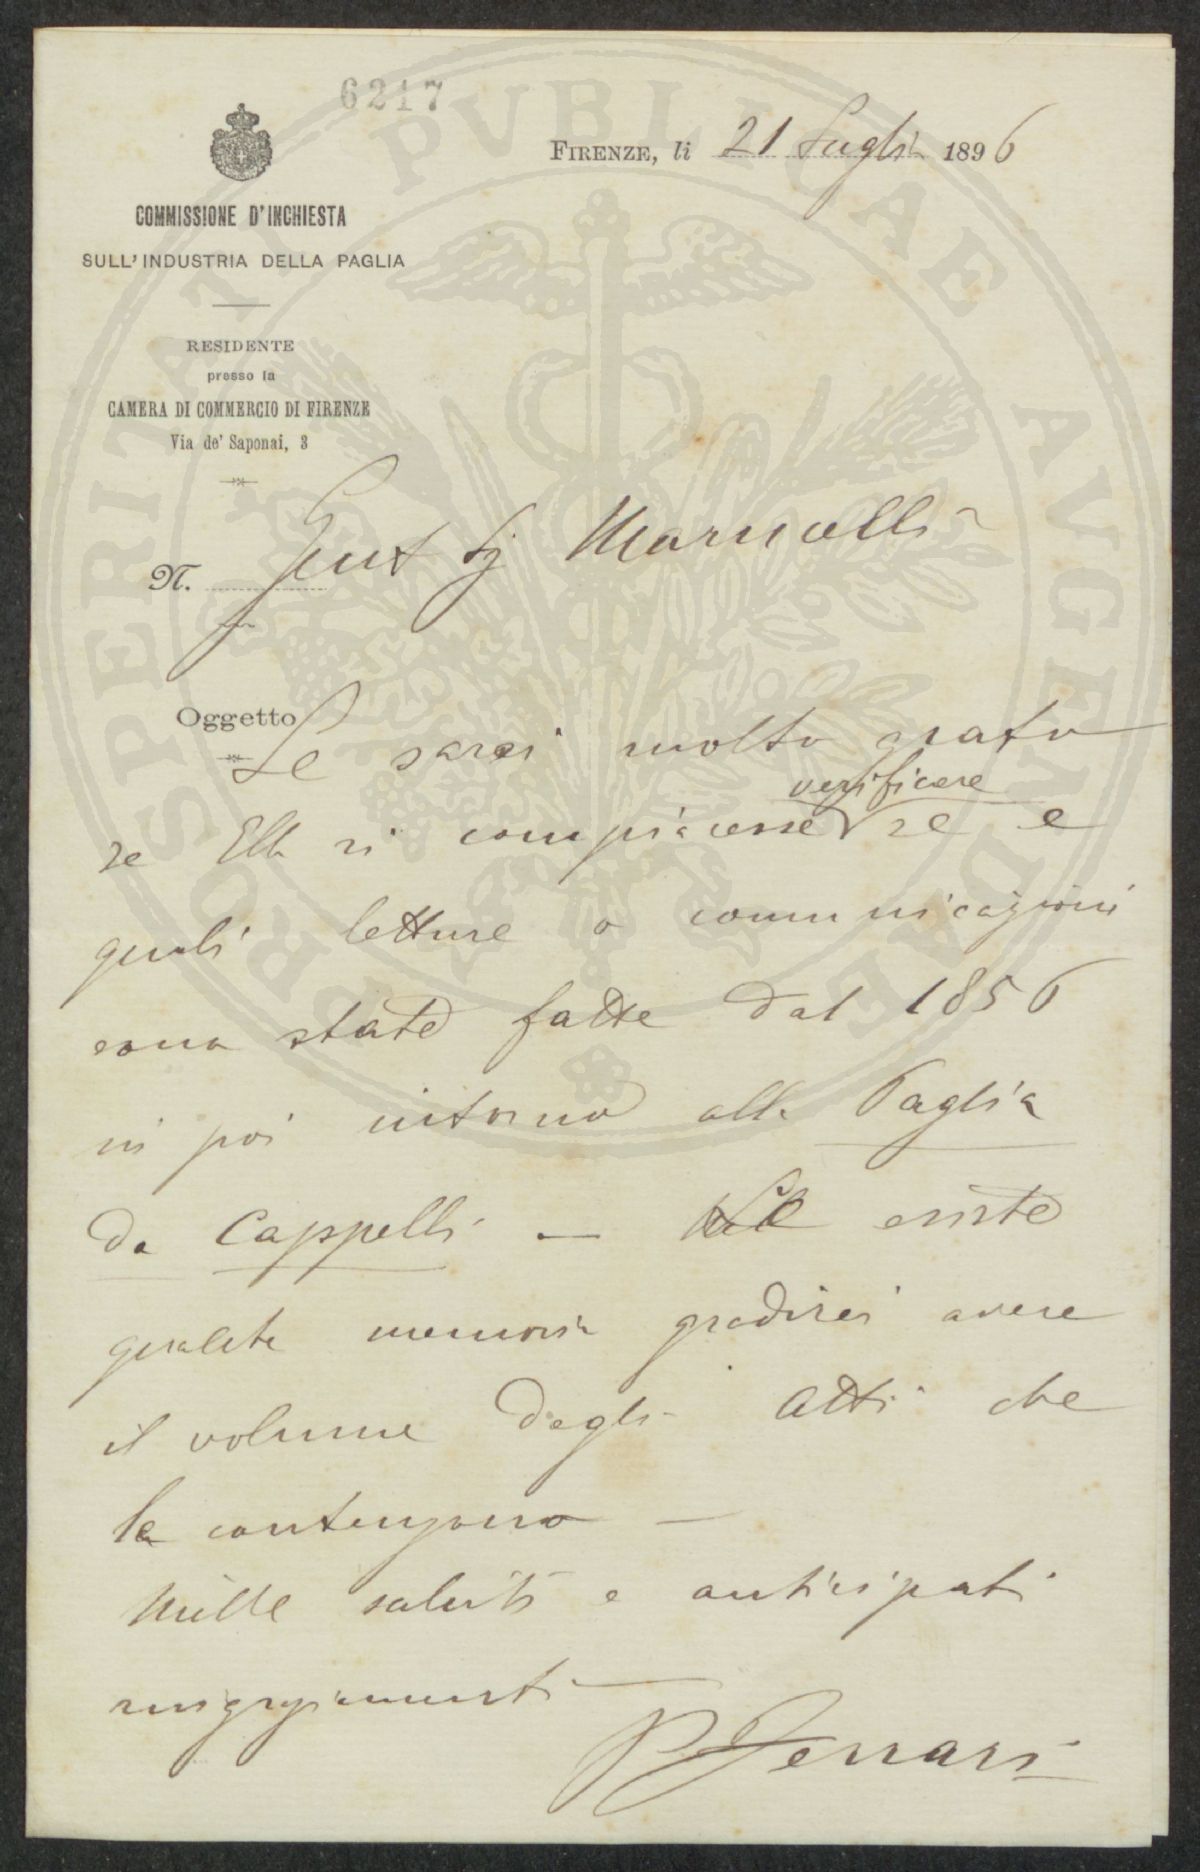 6217
FIRENZE, li 21 Luglio 1896
COMMISSIONE D'INCHIESTA
SULL'INDUSTRIA DELLA PAGLIA
RESIDENTE
presso la
CAMERA DI COMMERCIO DI FIRENZE
Via de' Saponai, 3
N.
Gent Sig Marucelli
Oggetto
Le sarei molto grato
se Ella si compiacesse verificare se e
quali letture o comunicazioni
sono state fatte dal 1856
in poi intorno alla Paglia
da Cappelli — Se esiste
qualche memoria gradirei avere
il volume degli Atti che
la contengono —
Mille saluti e anticipati
ringraziamenti
P Ferrari
PROSPERITATI PVBLICAE AVGENDAE